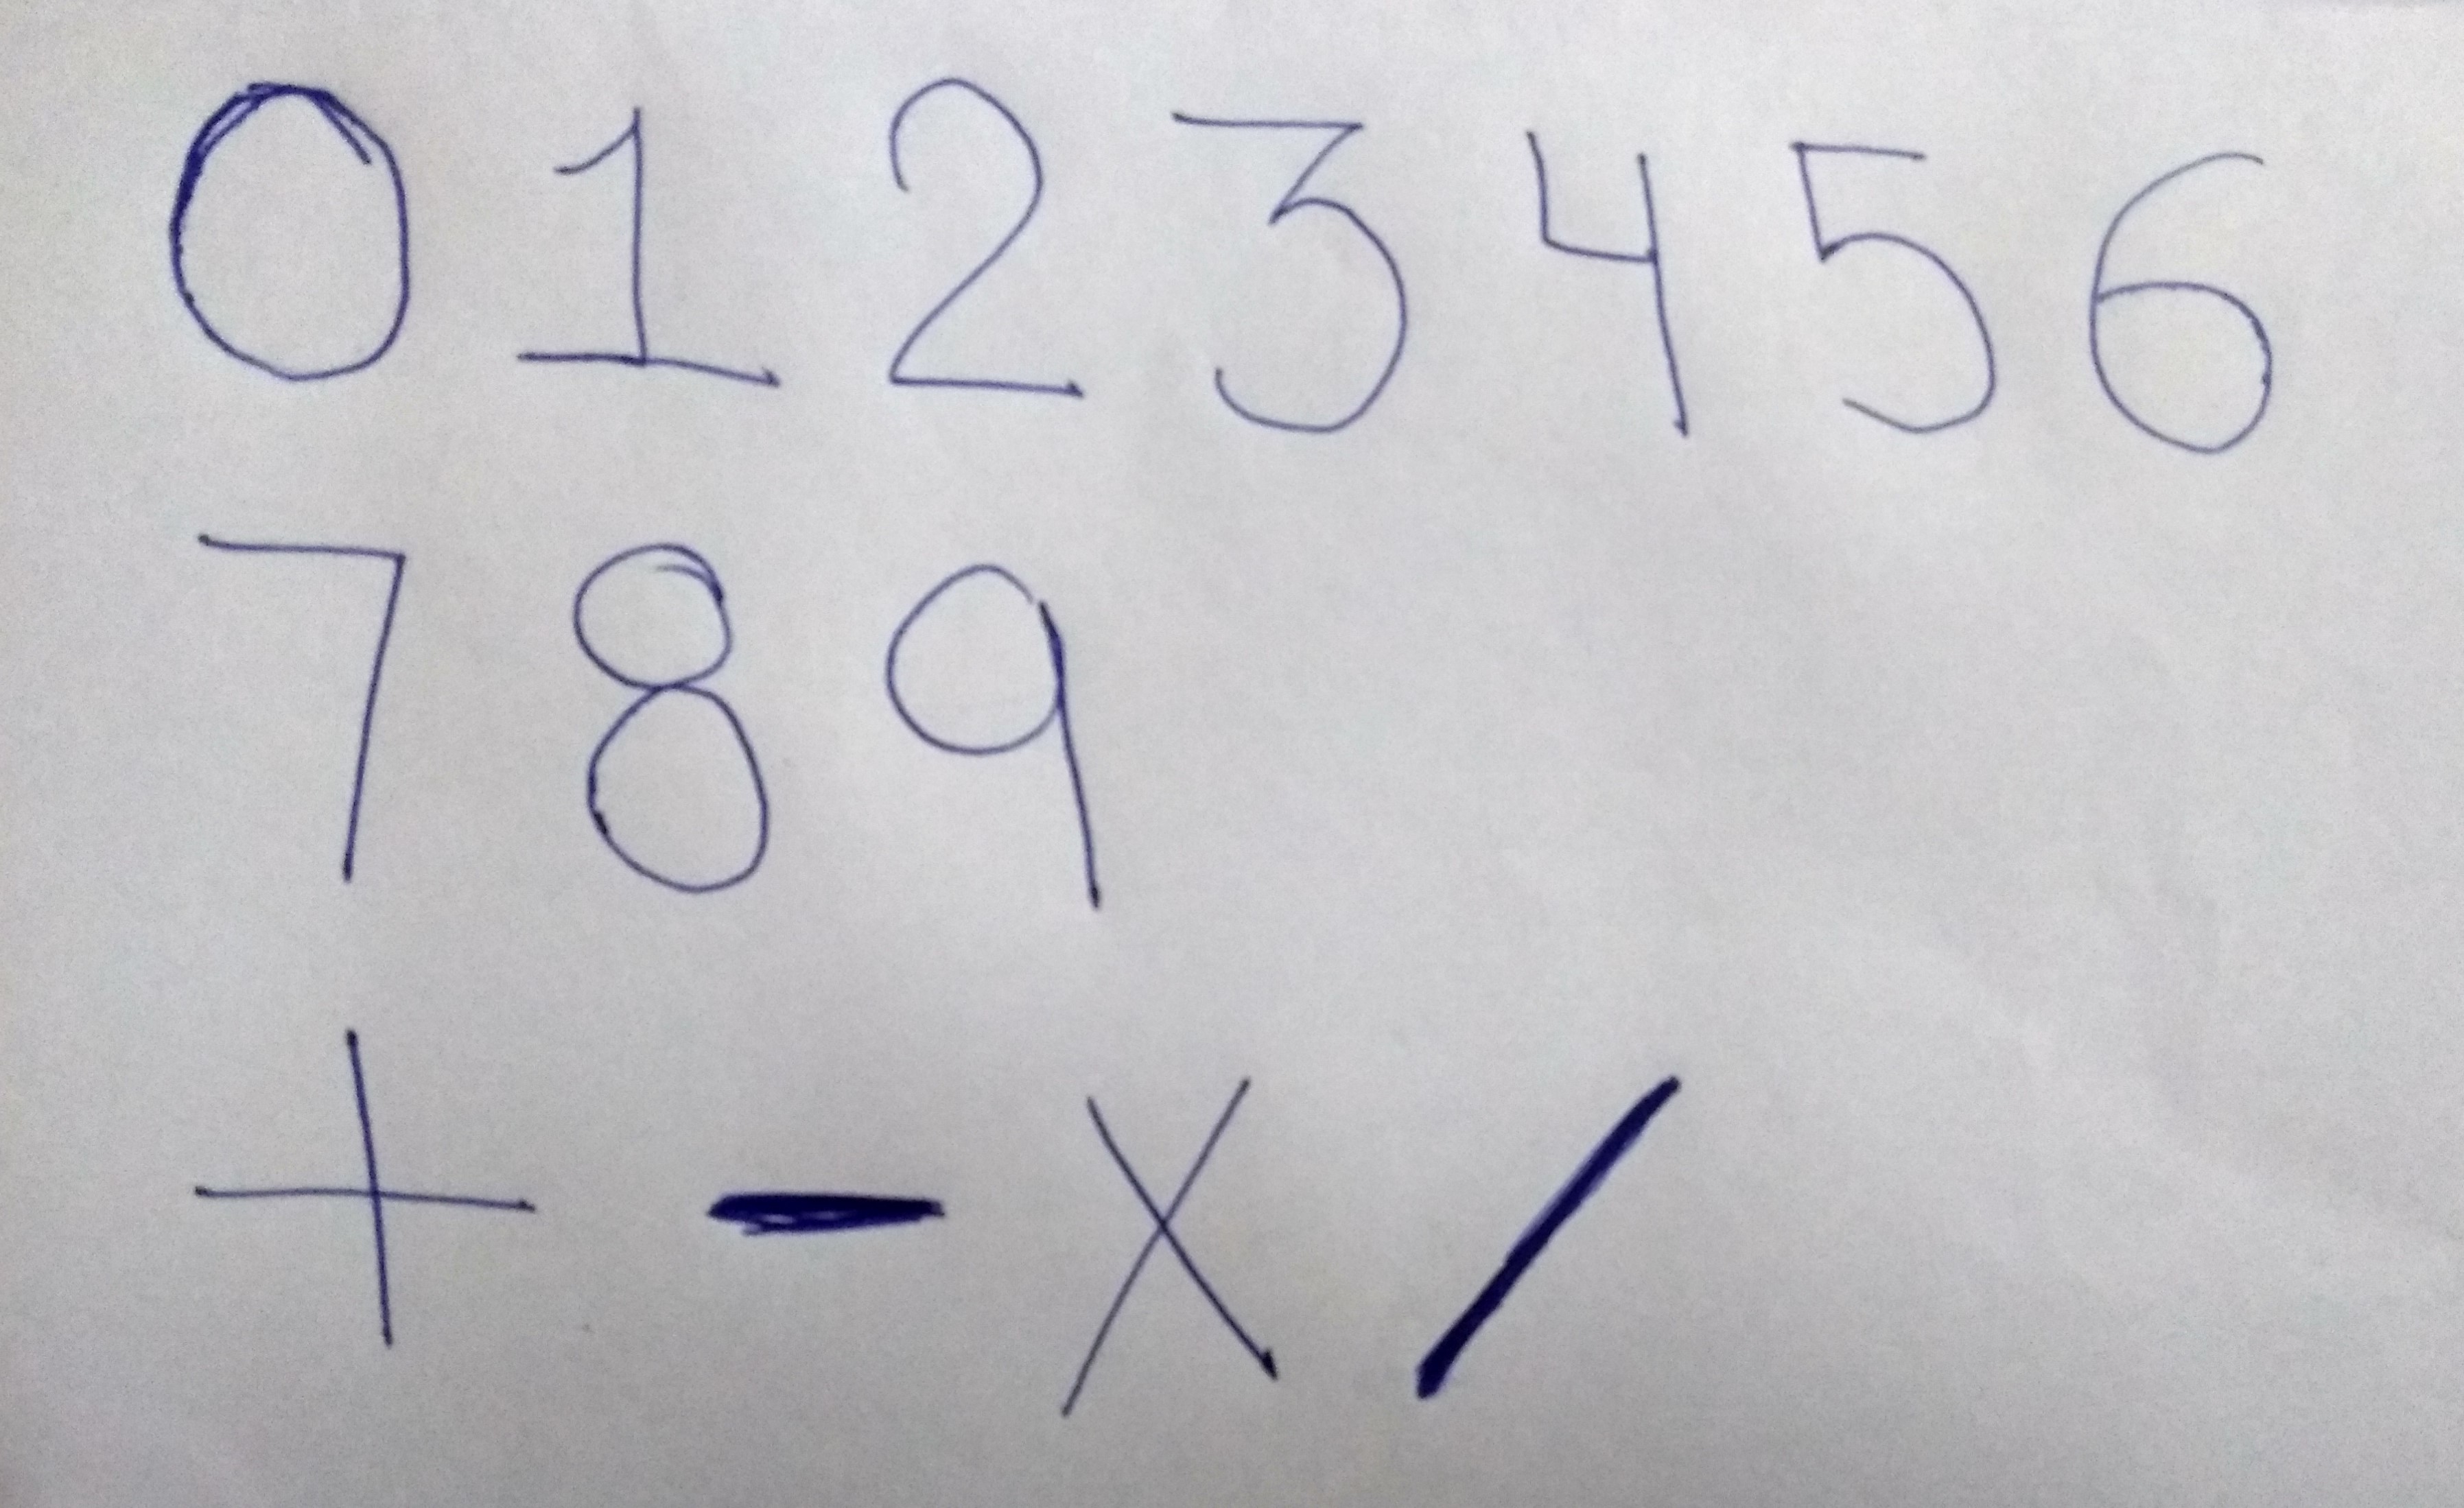 0 1 2 3 4 5 6
7 8 9
+ - X /